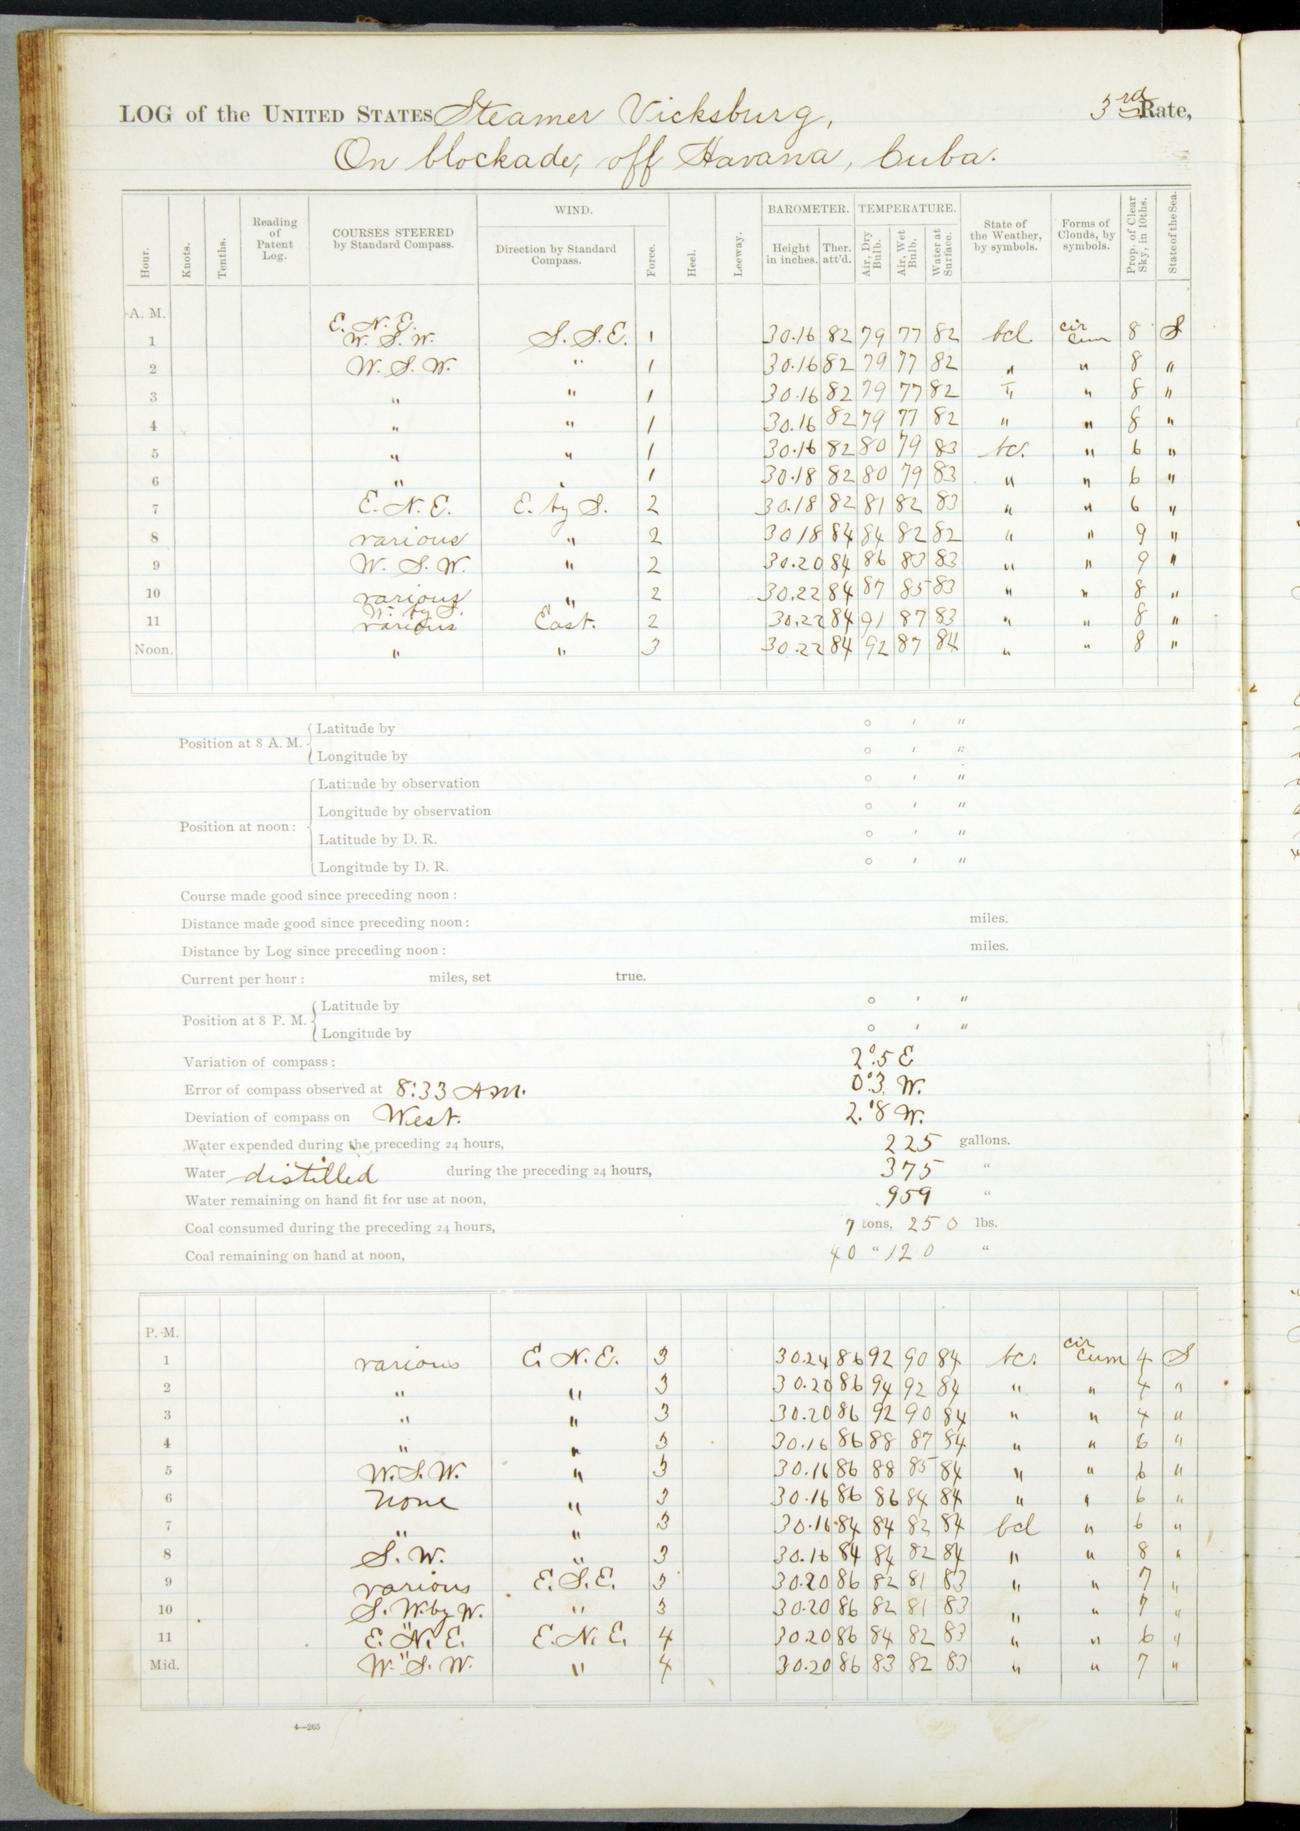 LOG of the UNITED STATES Steamer Vicksburg, 3rd Rate,
On blockade, off Havana, Cuba.
Hour. Knots. Tenths. Reading of Patent Log. COURSES STEERED by Standard Compass. WIND. Direction by Standard Compass. Force. Heel. Leeway. BAROMETER. Height in inches. Ther. att'd. TEMPERATURE. Air, Dry Bulb. Air, Wet Bulb. Water at Surface. State of the Weather, by symbols. Forms of Clouds, by symbols. Prop. of Clear Sky, in 10ths. State of the Sea.
A. M.
1 E. N. E. W. S. W. S. S. E. 1 30.16 82 79 77 82 bcl. cir cum 8 S
2 W. S. W. " 1 30.16 82 79 77 82 " " 8 "
3 " " 1 30.16 82 79 77 82 " " 8 "
4 " " 1 30.16 82 79 77 82 " " 8 "
5 " " 1 30.16 82 80 79 83 bc. " 6 "
6 " " 1 30.18 82 80 79 83 " " 6 "
7 E. N. E. E. by S. 2 30.18 82 81 82 83 " " 6 "
8 various " 2 30 18 84 84 82 82 " " 9 "
9 W. S. W. " 2 30.20 84 86 83 83 " " 9 "
10 various " 2 30.22 84 87 85 83 " " 8 "
11 W. by S. various East. 2 30.22 84 91 87 83 " " 8 "
Noon. " " 3 30.22 84 92 87 84 " " 8 "
Position at 8 A. M. Latitude by ° ' "
Longitude by ° ' "
Position at noon: Latitude by observation ° ' "
Longitude by observation ° ' "
Latitude by D. R. ° ' "
Longitude by D. R. ° ' "
Course made good since preceding noon:
Distance made good since preceding noon: miles.
Distance by Log since preceding noon: miles.
Current per hour: miles, set true.
Position at 8 P. M. Latitude by ° ' "
Longitude by ° ' "
Variation of compass: 2°.5 E
Error of compass observed at 8:33 AM. 0°.3 W.
Deviation of compass on West. 2.°8 W.
Water expended during the preceding 24 hours, 225 gallons.
Water distilled during the preceding 24 hours, 375 "
Water remaining on hand fit for use at noon, 959 "
Coal consumed during the preceding 24 hours, 7 tons, 250 lbs.
Coal remaining on hand at noon, 40 " 120 "
P. M.
1 various E. N. E. 3 30.24 86 92 90 84 bc. cir cum 4 S
2 " " 3 30.20 86 94 92 84 " " 4 "
3 " " 3 30.20 86 92 90 84 " " 4 "
4 " " 3 30.16 86 88 87 84 " " 6 "
5 W. S. W. " 3 30.16 86 88 85 84 " " 6 "
6 none " 3 30.16 86 86 84 84 " " 6 "
7 " " 3 30.16 84 84 82 84 bcl " 6 "
8 S. W. " 3 30.16 84 84 82 84 " " 8 "
9 various E. S. E. 3 30.20 86 82 81 83 " " 7 "
10 S. W. by W. " 3 30.20 86 82 81 83 " " 7 "
11 E. N. E. E. N. E. 4 30.20 86 84 82 83 " " 6 "
Mid. W. S. W. " 4 30.20 86 83 82 83 " " 7 "
4—265